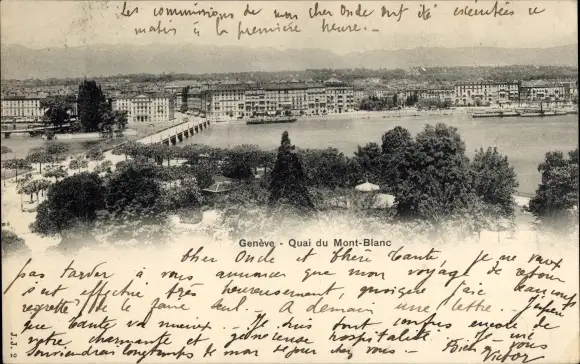 Les commissions de mon cher Oncle ont été exécutées ce
matin à la première heure. —
Genève - Quai du Mont-Blanc
Cher Oncle et chère Tante, Je ne veux
pas tarder à vous annoncer que mon voyage de retour
s'est effectué très heureusement, quoique j'aie beaucoup
regretté de le faire seul. A demain une lettre. J'espère
que tante va mieux. — Je suis tout confus encore de
votre charmante et généreuse hospitalité. Je me
souviendrai longtemps de mon séjour chez vous. — Bien à vous
Victor
J.J. 2